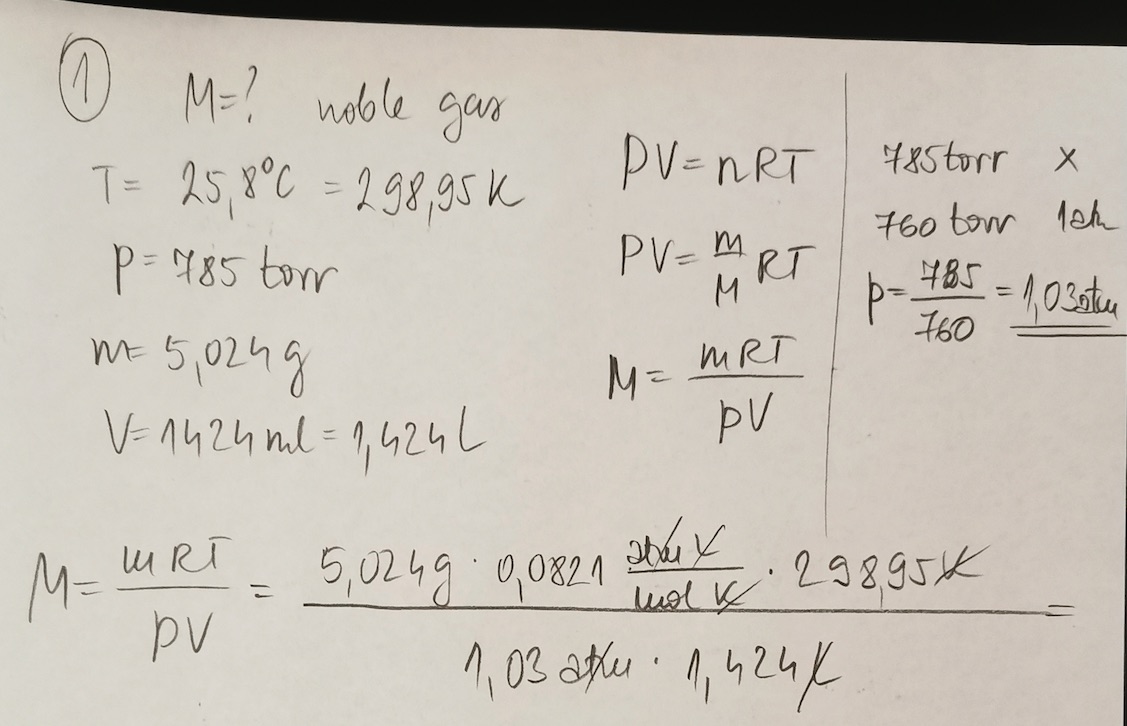 1
M=? noble gas
T= 25,8°C = 298,95 K
p= 785 torr
m= 5,024g
V= 1424 ml = 1,424 L
PV = nRT
PV = m/M RT
M = mRT/pV
785 torr x
760 torr 1atm
p= 785/760 = 1,03 atm
M = mRT/pV = 5,024g · 0,0821 atm L/mol K · 298,95 K / 1,03 atm · 1,424 L =